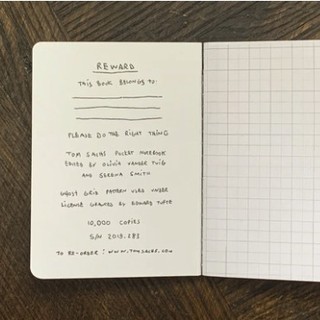 REWARD
THIS BOOK BELONGS TO:
PLEASE DO THE RIGHT THING
TOM SACHS POCKET
EDITED BY OLIVIA VANDER TUIG
AND SERENA SMITH
GHOST GRID PATTERN USED UNDER
LICENSE GRANTED BY EDWARD TUFTE
10,000 COPIES
S/N 2019.383
TO RE-ORDER: WWW.TOMSACHS.ORG